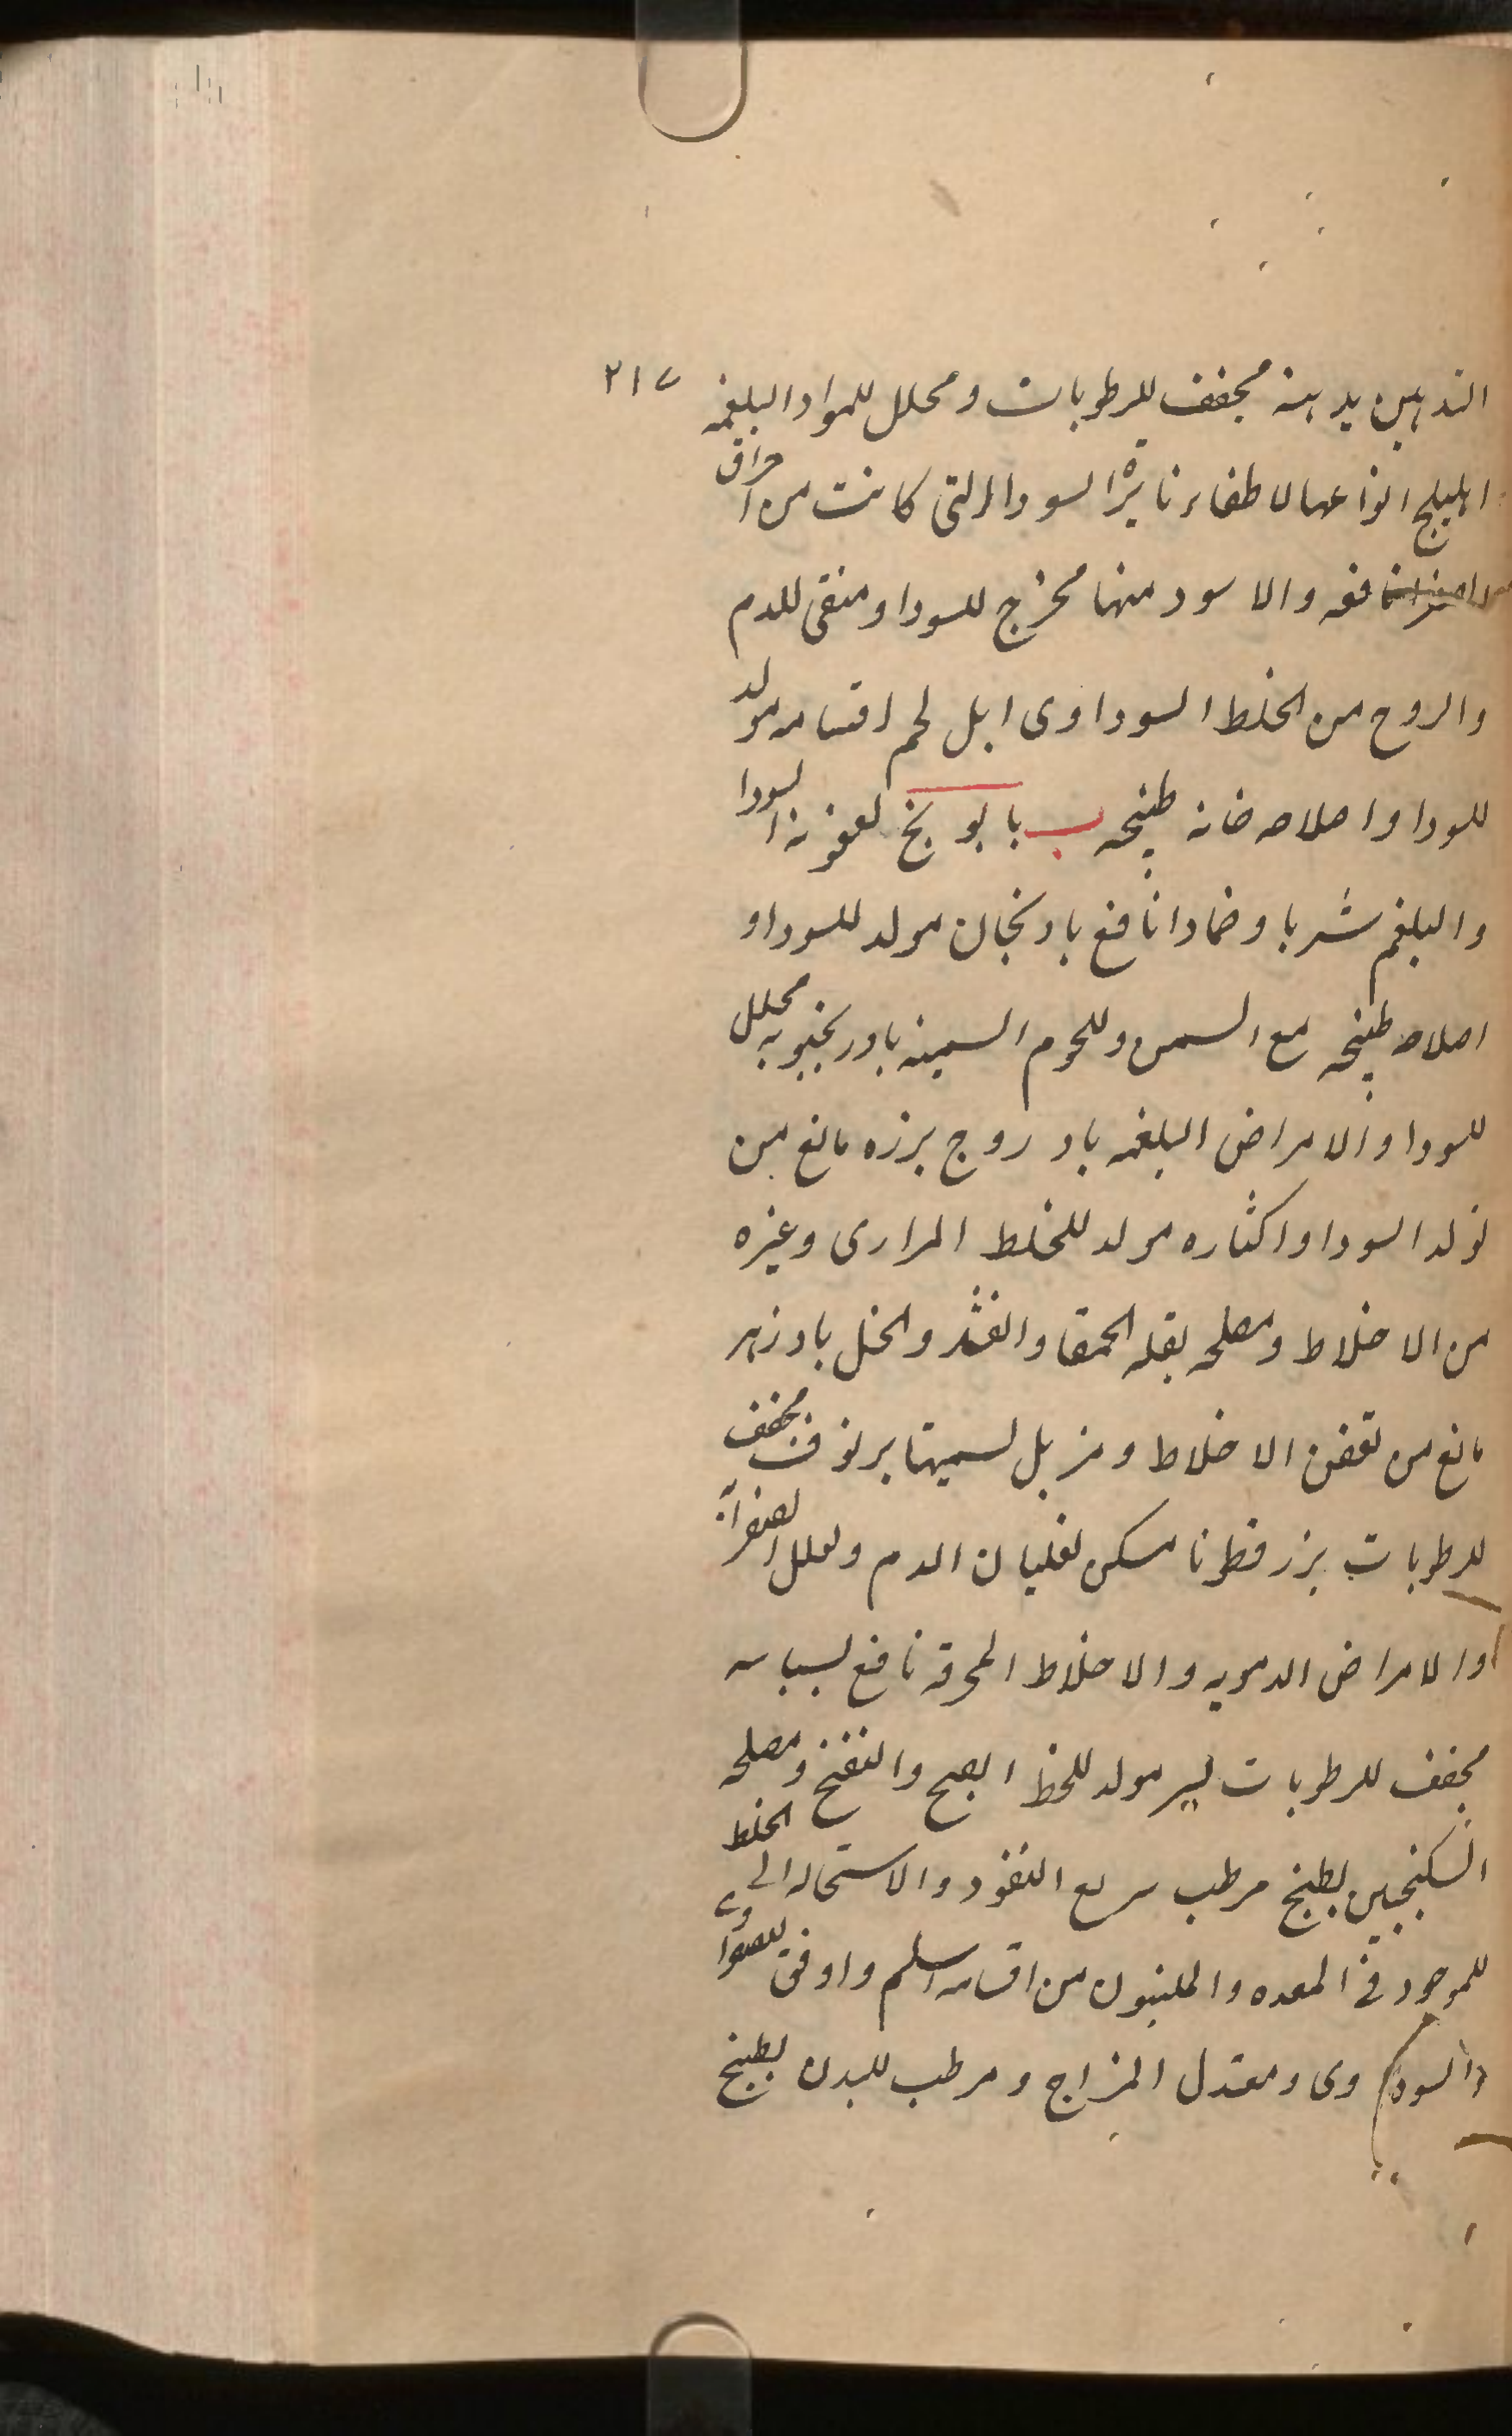 ٢١٧
التدهين بدهنه مجفف للرطوبات ومحلل للمواد البلغميه
اهليلج انواعها لاطفاء نايرة السودا التى كانت من احراق
نافعه والاسود منها مخرج للسودا ومنقى للدم
والروح من الخلط السوداوى ابل لحم اقسامه مولد
للسودا واصلاحه طبيخه ب بابونج لعفونة السودا
والبلغم شربا وضمادا نافع بادنجان مولد للسودا و
اصلاحه طبيخه مع السمن واللحوم السمينه بادرنجبويه محلل
للسودا والامراض البلغميه بادروج بزره مانع من
تولد السودا واكثاره مولد للخلط المرارى وغيره
من الاخلاط ومصلحه بقله الحمقا والخل بادزهر
مانع من تعفن الاخلاط ومزيل لسميتها برنوف مجفف
للرطوبات بزر قطونا مسكن لغليان الدم ولعلل الصفرا
والامراض الدمويه والاخلاط المحرقه نافع بسباسه
مجفف للرطوبات بسر مولد للخلط الفج والنفخ ومصلحه
السكنجبين بطيخ مرطب سريع النفوذ والاستحاله الى الخلط
للموجود فى المعده والملنبون من اقسامه اسلم واوفق للصفراوى
والسوداوى ومعتدل المزاج ومرطب للبدن بطيخ